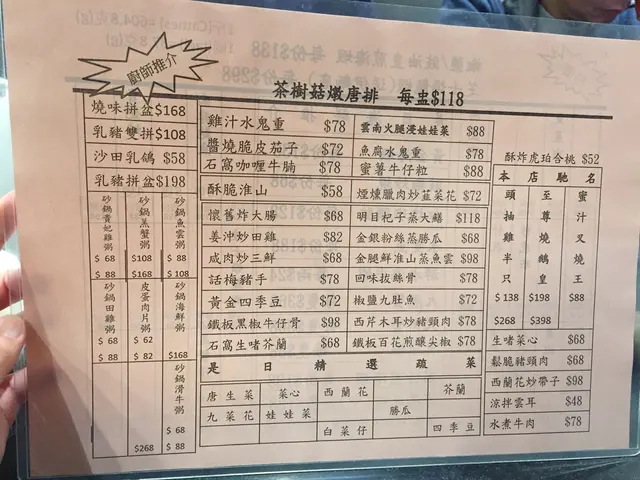 廚師推介
茶樹菇燉唐排 每盅$118
燒味拼盆$168
乳豬雙拼$108
沙田乳鴿 $58
乳豬拼盆$198
砂鍋貴妃雞粥 $68 $88
砂鍋羔蟹粥 $108 $168
砂鍋魚雲粥 $88 $108
砂鍋田雞粥 $68 $88
皮蛋肉片粥 $62 $82
砂鍋海鮮粥 $168
$268
砂鍋滑牛粥 $68 $88
雞汁水鬼重 $78
醬燒脆皮茄子 $78
石窩咖喱牛腩 $78
酥脆淮山 $58
懷舊炸大腸 $68
姜沖炒田雞 $82
咸肉炒三鮮 $68
話梅豬手 $78
黃金四季豆 $72
鐵板黑椒牛仔骨 $98
石窩生啫芥蘭 $68
雲南火腿浸娃娃菜 $88
魚腐水鬼重 $78
蜜薯牛仔粒 $88
煙燻臘肉炒韮菜花 $72
明目杞子蒸大鱔 $118
金銀粉絲蒸勝瓜 $68
金腿鮮淮山蒸魚雲 $98
回味拔絲骨 $78
椒鹽九肚魚 $72
西芹木耳炒豬頸肉 $78
鐵板百花煎釀尖椒 $78
是日精選蔬菜
唐生菜 菜心 西蘭花 芥蘭
九菜花 娃娃菜 勝瓜
白菜仔 四季豆
酥炸虎珀合桃 $52
本店馳名
頭抽雞半只 $138 $268
至尊燒鵝皇 $198 $398
蜜汁叉燒王 $88
生啫菜心 $68
鬆脆豬頸肉 $68
西蘭花炒帶子 $98
涼拌雲耳 $48
水煮牛肉 $78